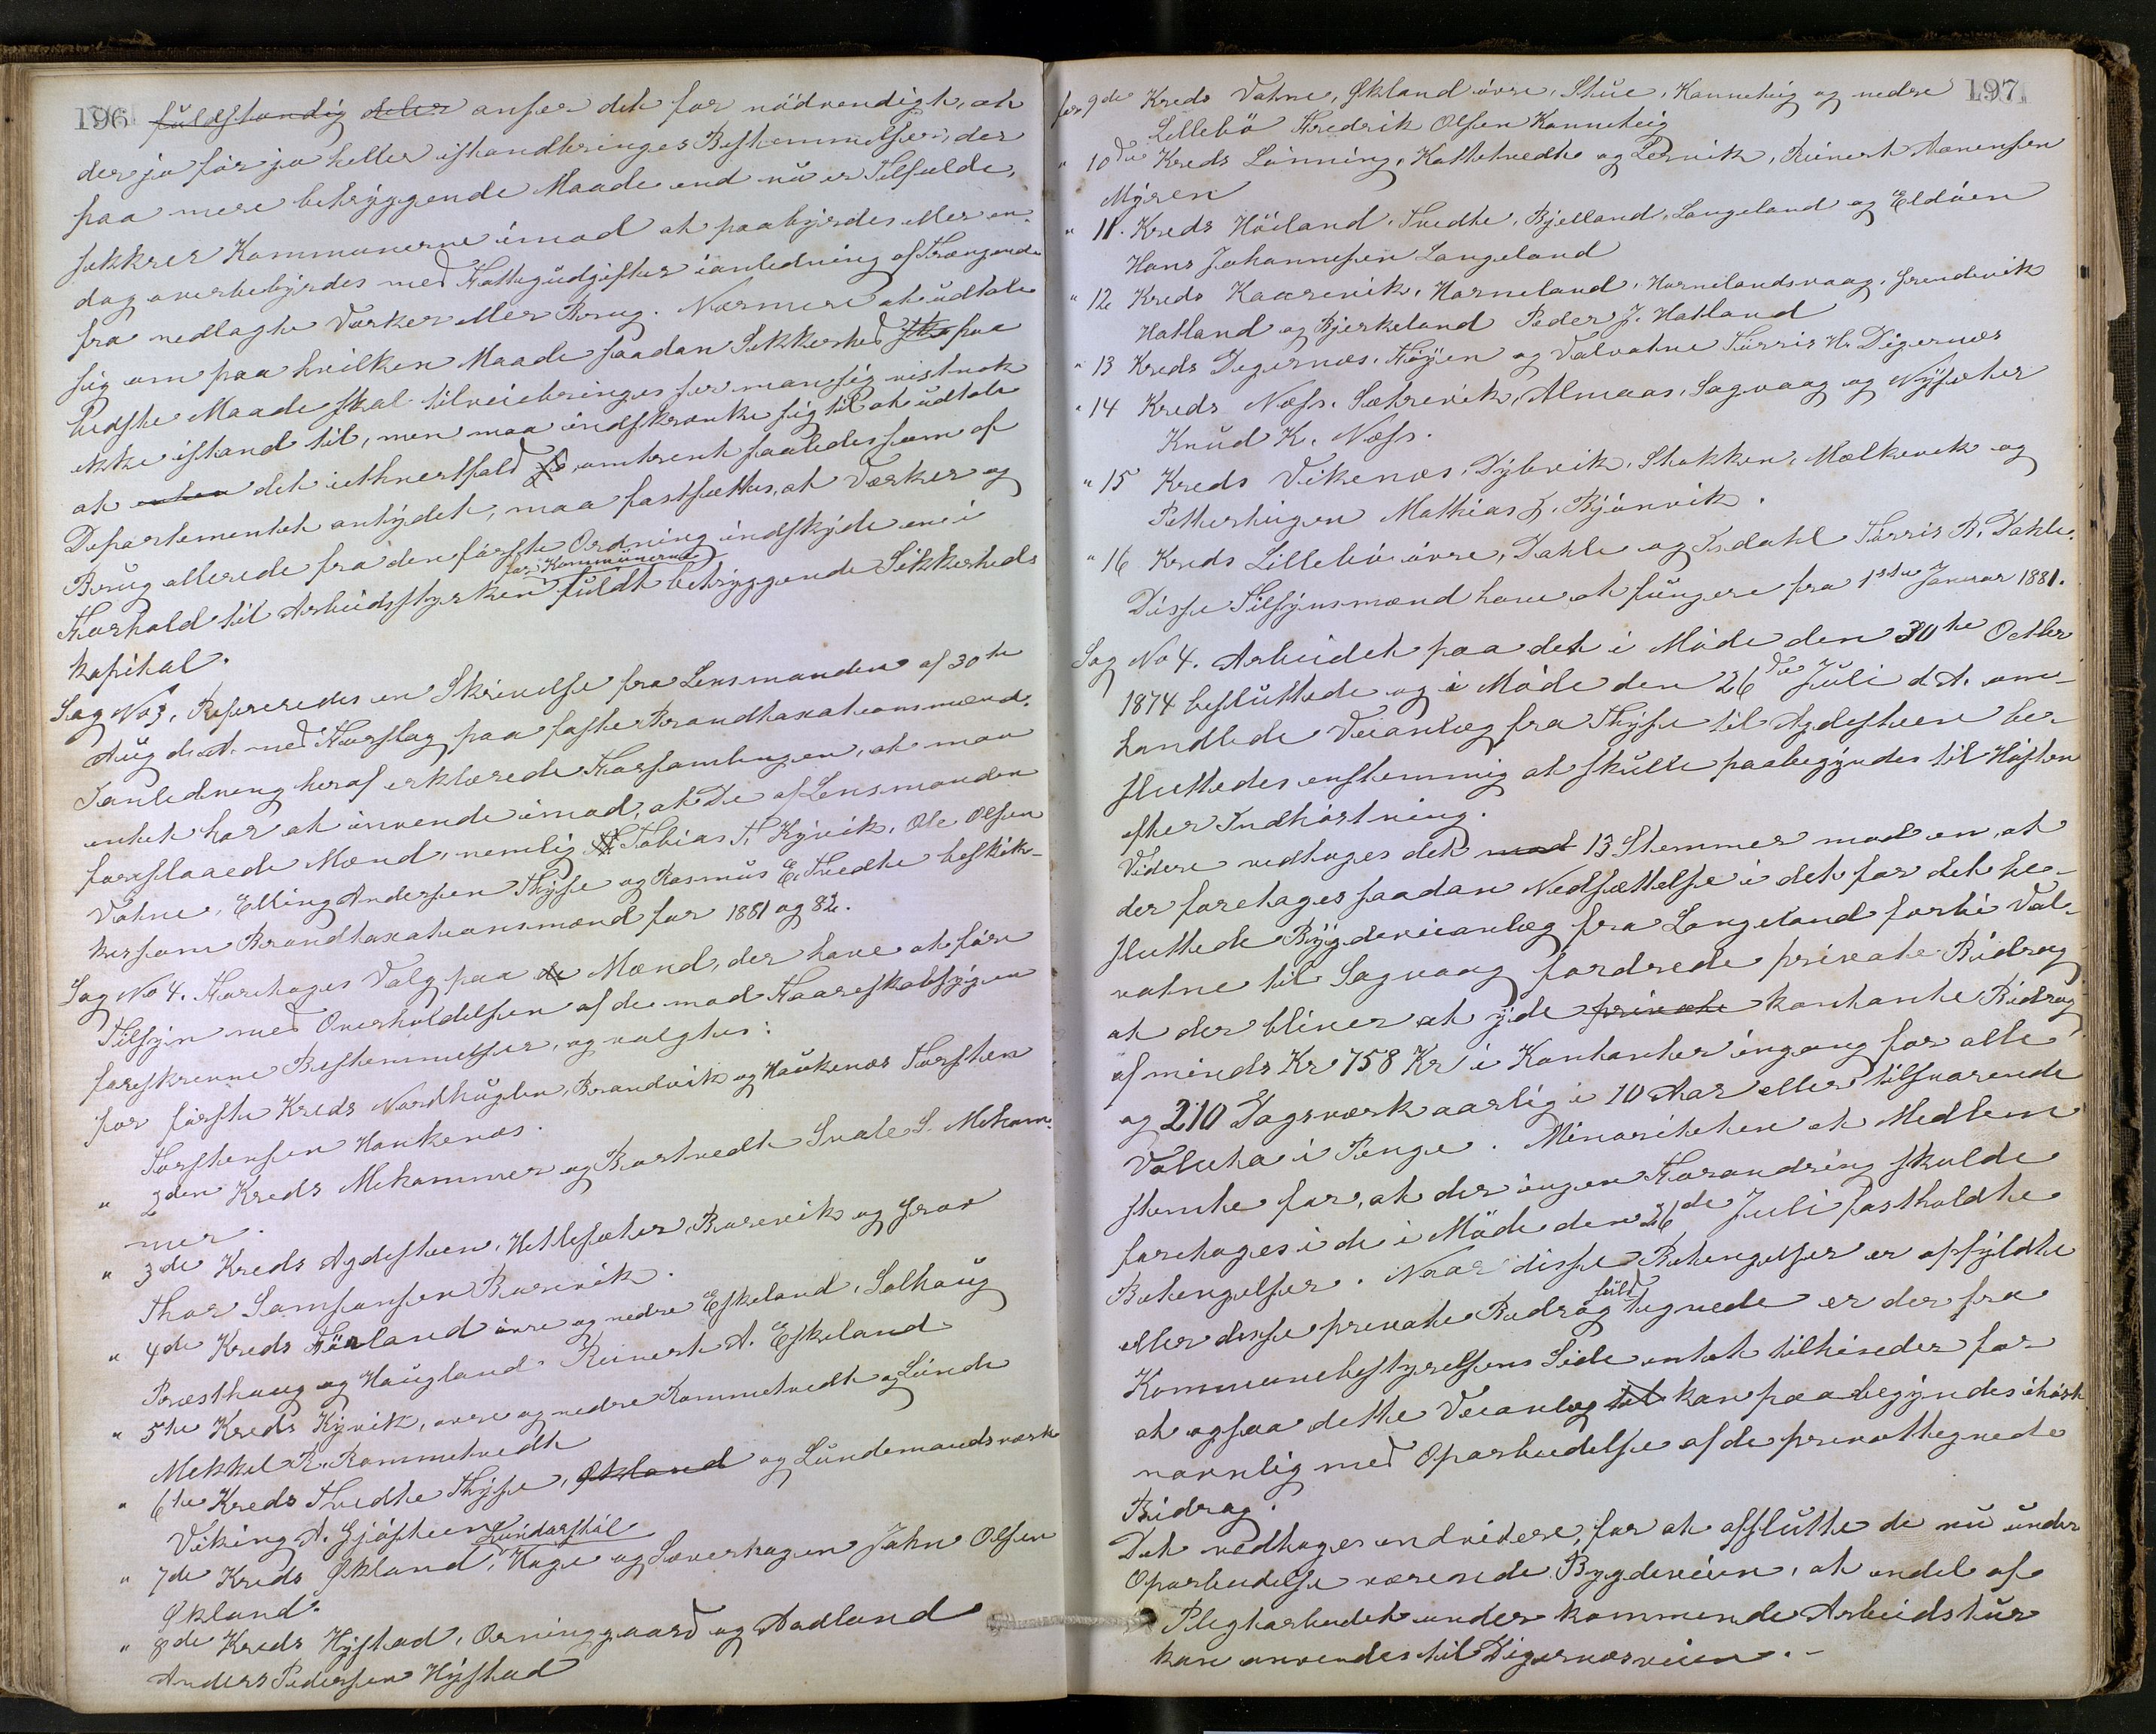 196
fuldstændig eller anser det for nödvendigt, at
der jo för jo heller istandbringes Bestemmelser, der
paa mere betryggende Maade end nu er Tilfælde,
sikkrer Kommunerne imod at paabyrdes eller en-
dog overbebyrdes med Fattigudgifter ianledning af Trængende
fra nedlagte Værker eller Brug. Nærmere at udtale
sig om paa hvilken Maade saadan Sikkerhed ska paa
bedste Maade skal tilveiebringes ser man sig vistnok
ikke istand til, men maa indskrænke sig til at udtale
at det iethvertfald omtrent saaledes som af
Departementet antydet, maa fastsættes, at Værker og
Brug allerede fra den förste Ordning indskyde en i
for Kommunerne
Forhold til Arbeidsstyrken fuldt betryggende Sikkerheds
kapital.
Sag No 3. Refereredes en Skrivelse fra Lensmanden af 30te
Aug d. A. med Forslag paa faste Brandtaxationsmænd.
Ianledning heraf erklærede Forsamlingen, at man
intet har at invende imod, at De af Lensmanden
foreslaaede Mænd, nemlig Tobias T. Kyvik, Ole Olsen
Vatne, Elling Andersen Thyse og Rasmus E. Tvedte beskik-
kes som Brandtaxationsmænd for 1881 og 82.
Sag No 4. Foretoges Valg paa de Mænd, der have at före
Tilsyn med Overholdelsen af de mod Faareskabsygen
foreskrevne Bestemmelser, og valgtes:
for förste Kreds Nordhuglen, Brandvik og Haukenæs Torsten
Torstensen Haukenæs.
" 2den Kreds Mehammer og Bartvedt Svale S. Meham-
mer.
" 3de Kreds Agdesteen, Hetlesæter, Borevik og Grov
Thor Samsonsen Borevik.
" 4de Kreds Förland övre og nedre Eskeland, Solhaug
Præsthaug og Haugland Reinert A. Eskeland
" 5te Kreds Kyvik, övre og nedre Rommetvedt og Lunde
Mekkel R. Rommetvedt
" 6te Kreds Tvedte Thyse, Økland og Lundemandsværk
Viking A. Gjösteen
Lundarstöl
" 7de Kreds Økland, Hage og Sæverhagen John Olsen
Økland.
" 8de Kreds Hystad, Orninggaard og Aadland
Anders Pedersen Hystad
197
for 9de Kreds Vatne, Økland övre, Stue, Kanneteig og nedre
Lillebö Fredrik Olsen Kanneteig
" 10de Kreds Lönning, Kattetvedt og Lervik, Reinert Aanensen
Myren
" 11. Kreds Höiland, Tvedte, Bjelland, Langeland og Eldöen
Hans Johannesen Langeland
" 12 Kreds Kaarevik, Horneland, Hornelandsvaag, Grendevik
Hatland og Bjerkeland Peder J. Hatland
" 13 Kreds Digernæs, Föyen og Valvatne Torris H. Digernæs
" 14 Kreds Næss, Sætrevik, Almaas, Sagvaag og Nysæter
Knud K. Næss.
" 15 Kreds Vikenæs, Dybvik, Stokken, Mælkevik og
Petterteigen Mathias J. Björnvik.
" 16 Kreds Lillebö övre, Dahle og Isdahl Torris A. Dahle.
Disse Tilsynsmænd have at fungere fra 1ste Januar 1881.
Sag No 4. Arbeidet paa det i Möde den 30te Octber
1874 besluttede og i Möde den 26de Juli d. A. om-
handlede Veianlæg fra Thyse til Agdesteen be-
sluttedes enstemmig at skulle paabegyndes til Hösten
efter Indhöstning.
Videre vedtoges det mod 13 Stemmer mod en, at
der foretages saadan Nedsættelse i det for det be-
sluttede Bygdeveianlæg fra Langeland forbi Val-
vatne til Sagvaag fordrede private Bidrag
at der bliver at yde private kontante Bidrag
af minds Kr 758 Kr i Kontanter ingang for alle
og 210 Dagsværk aarlig i 10 Aar eller tilsvarende
Valuta i Penge. Minoriteten et Medlem
stemte for, at der ingen Forandring skulde
foretages i de i Möde den 26de Juli fastholdte
Betengelser. Naar disse Betengelser er opfyldte
fuld
eller disse private Bidrag tegnede er der fra
Kommunebestyrelsens Side intet tilhinder for
at ogsaa dette Veianlæg til kan paabegyndes ihöst
navnlig med Oparbeidelse af de privattegnede
Bidrag.
Det vedtoges endvidere, for at afslutte de nu under
Oparbeidelse værende Bygdeveien, at endel af
Pligtarbeidet under kommende Arbeidstur
kan anvendes til Digernæsveien.-